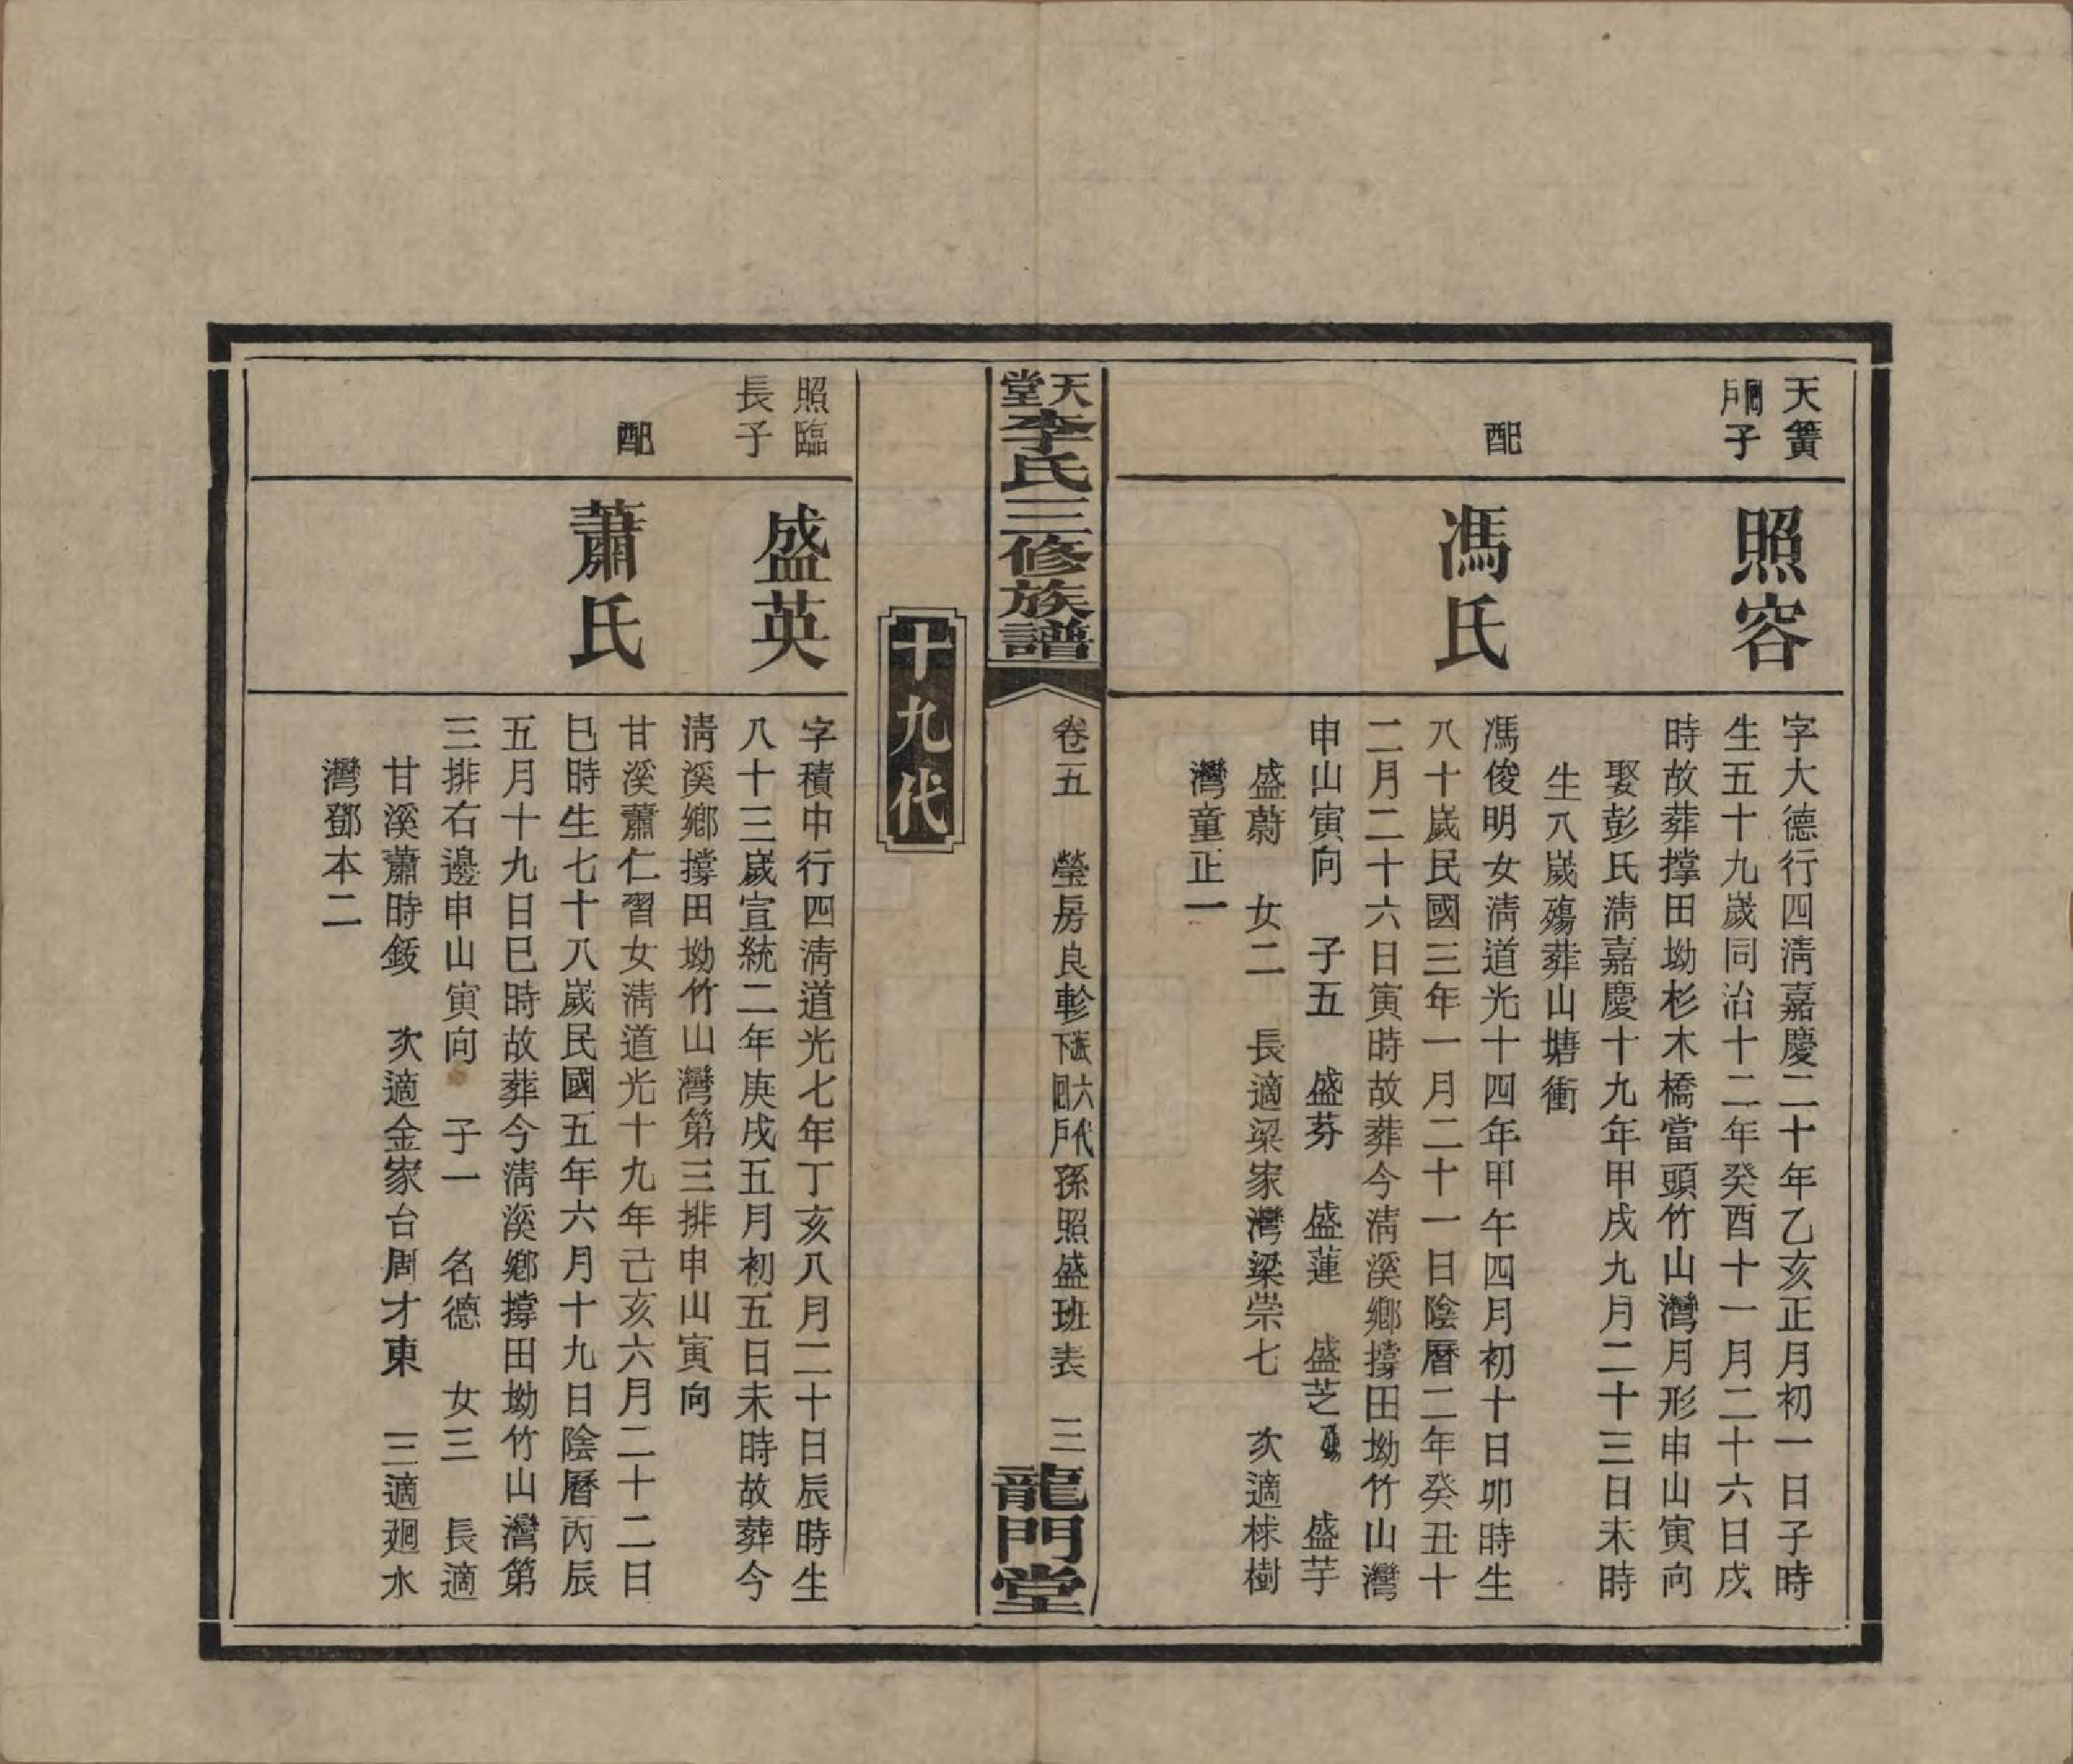 天簧
嗣子
照容
字大德行四淸嘉慶二十年乙亥正月初一日子時
生五十九歲同治十二年癸酉十一月二十六日戌
時故葬撑田坳杉木橋當頭竹山灣月形申山寅向
娶彭氏淸嘉慶十九年甲戌九月二十三日未時
生八歲殤葬山塘衝
配
馮氏
馮俊明女淸道光十四年甲午四月初十日卯時生
八十歲民國三年一月二十一日陰曆二年癸丑十
二月二十六日寅時故葬今淸溪鄉撑田坳竹山灣
申山寅向 子五 盛芬 盛蓮 盛芝 盛芋
盛蔚 女二 長適梁家灣梁崇七 次適梂樹
灣童正一
天堂李氏三修族譜
卷五 瑩房良軫下六代孫照盛班表 三
龍門堂
十九代
照臨
長子
盛英
字積中行四淸道光七年丁亥八月二十日辰時生
八十三歲宣統二年庚戌五月初五日未時故葬今
淸溪鄉撑田坳竹山灣第三排申山寅向
配
蕭氏
甘溪蕭仁習女淸道光十九年己亥六月二十二日
巳時生七十八歲民國五年六月十九日陰曆丙辰
五月十九日巳時故葬今淸溪鄉撑田坳竹山灣第
三排右邊申山寅向 子一 名德 女三 長適
甘溪蕭時䤼 次適金家台周才東 三適迴水
灣鄧本二